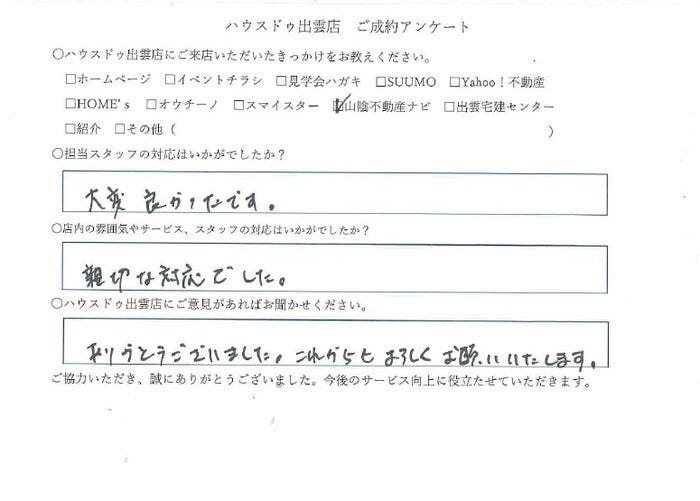 ハウスドゥ出雲店　ご成約アンケート
〇ハウスドゥ出雲店にご来店いただいたきっかけをお教えください。
□ホームページ　□イベントチラシ　□見学会ハガキ　□SUUMO　□Yahoo！不動産
□HOME's　□オウチーノ　□スマイスター　☑山陰不動産ナビ　□出雲宅建センター
□紹介　□その他（　　　　　　　　　　　　　　　　　　　　）
〇担当スタッフの対応はいかがでしたか？
大変良かったです。
〇店内の雰囲気やサービス、スタッフの対応はいかがでしたか？
親切な対応でした。
〇ハウスドゥ出雲店にご意見があればお聞かせください。
ありがとうございました。これからもよろしくお願いいたします。
ご協力いただき、誠にありがとうございました。今後のサービス向上に役立たせていただきます。